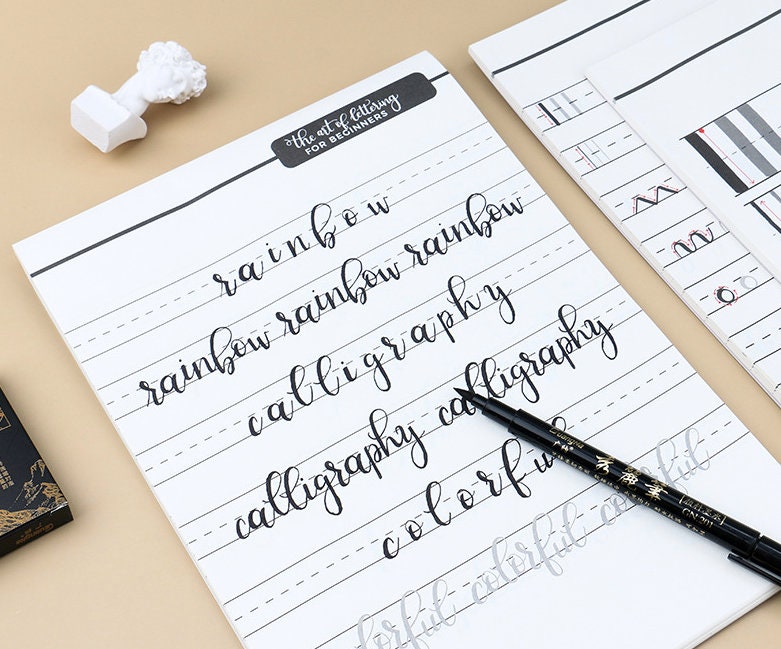 the art of lettering
FOR BEGINNERS
rainbow
rainbow rainbow rainbow
calligraphy
calligraphy calligraphy
colorful
colorful colorful
Guangna